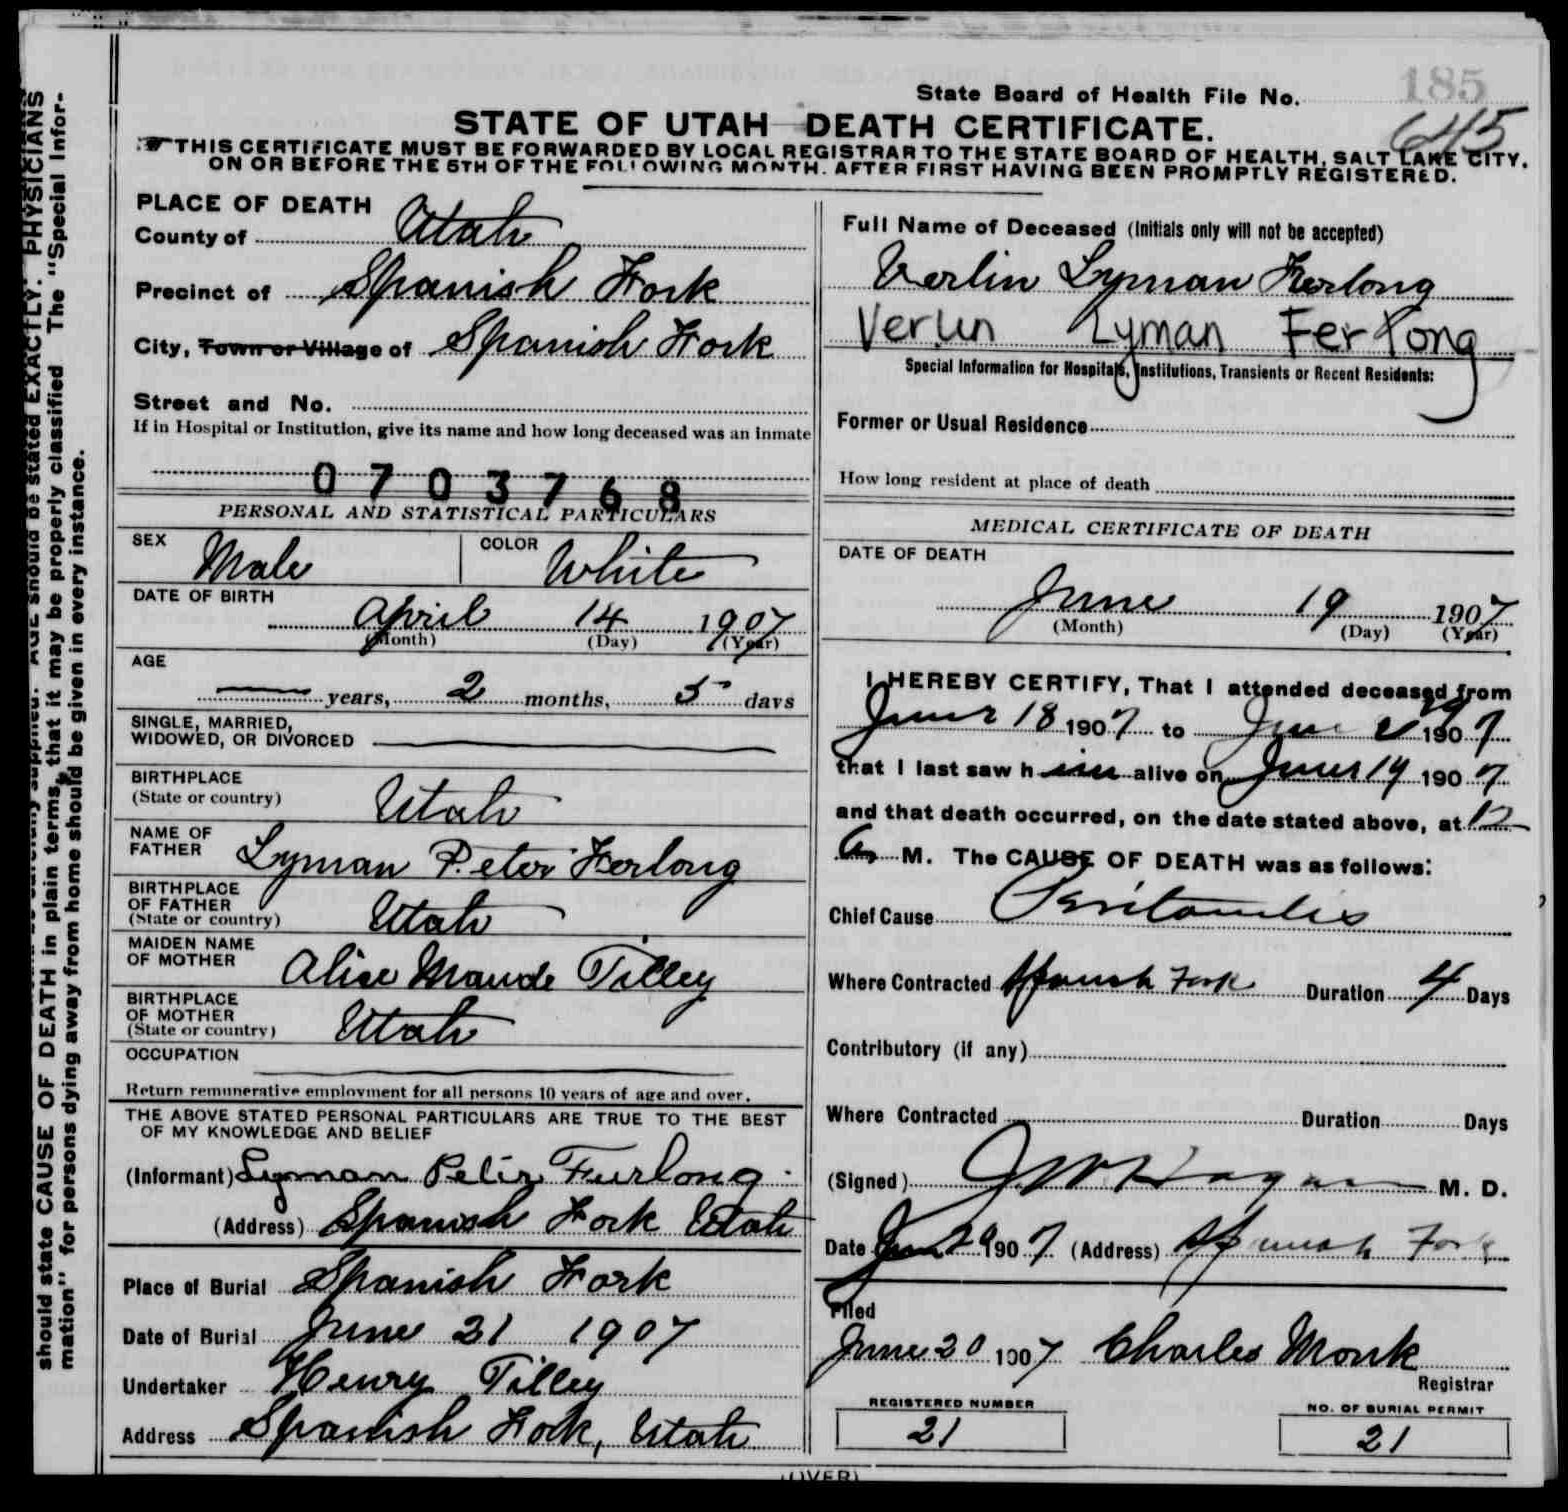 185
State Board of Health File No.
645
STATE OF UTAH DEATH CERTIFICATE.
THIS CERTIFICATE MUST BE FORWARDED BY LOCAL REGISTRAR TO THE STATE BOARD OF HEALTH, SALT LAKE CITY,
ON OR BEFORE THE 5TH OF THE FOLLOWING MONTH. AFTER FIRST HAVING BEEN PROMPTLY REGISTERED.
PLACE OF DEATH
County of Utah
Precinct of Spanish Fork
City, Town or Village of Spanish Fork
Street and No.
If in Hospital or Institution, give its name and how long deceased was an inmate
0703768
PERSONAL AND STATISTICAL PARTICULARS
SEX Male COLOR White
DATE OF BIRTH
April 14 1907
(Month) (Day) (Year)
AGE
— years, 2 months, 5 days
SINGLE, MARRIED,
WIDOWED, OR DIVORCED
BIRTHPLACE
(State or country) Utah
NAME OF
FATHER Lyman Peter Ferlong
BIRTHPLACE
OF FATHER
(State or country) Utah
MAIDEN NAME
OF MOTHER Alice Maude Tilley
BIRTHPLACE
OF MOTHER
(State or country) Utah
OCCUPATION
Return remunerative employment for all persons 10 years of age and over.
THE ABOVE STATED PERSONAL PARTICULARS ARE TRUE TO THE BEST
OF MY KNOWLEDGE AND BELIEF
(Informant) Lyman Peter Furlong
(Address) Spanish Fork Utah
Place of Burial Spanish Fork
Date of Burial June 21 1907
Undertaker Henry Tilley
Address Spanish Fork, Utah
Full Name of Deceased (Initials only will not be accepted)
Verlin Lyman Ferlong
Verlin Lyman Ferlong
Special Information for Hospitals, Institutions, Transients or Recent Residents:
Former or Usual Residence
How long resident at place of death
MEDICAL CERTIFICATE OF DEATH
DATE OF DEATH
June 19 1907
(Month) (Day) (Year)
I HEREBY CERTIFY, That I attended deceased from
June 18 1907 to June 1907
that I last saw him alive on June 19 1907
and that death occurred, on the date stated above, at 12
a M. The CAUSE OF DEATH was as follows:
Chief Cause Peritonitis
Where Contracted Spanish Fork Duration 4 Days
Contributory (if any)
Where Contracted Duration Days
(Signed) J W Hagan M. D.
Date June 20 1907 (Address) Spanish Fork
Filed
June 20 1907 Charles Monk
Registrar
REGISTERED NUMBER
21
NO. OF BURIAL PERMIT
21
(OVER)
AGE should be stated EXACTLY. PHYSICIANS
should state CAUSE OF DEATH in plain terms, that it may be properly classified The "Special Infor-
mation" for persons dying away from home should be given in every instance.